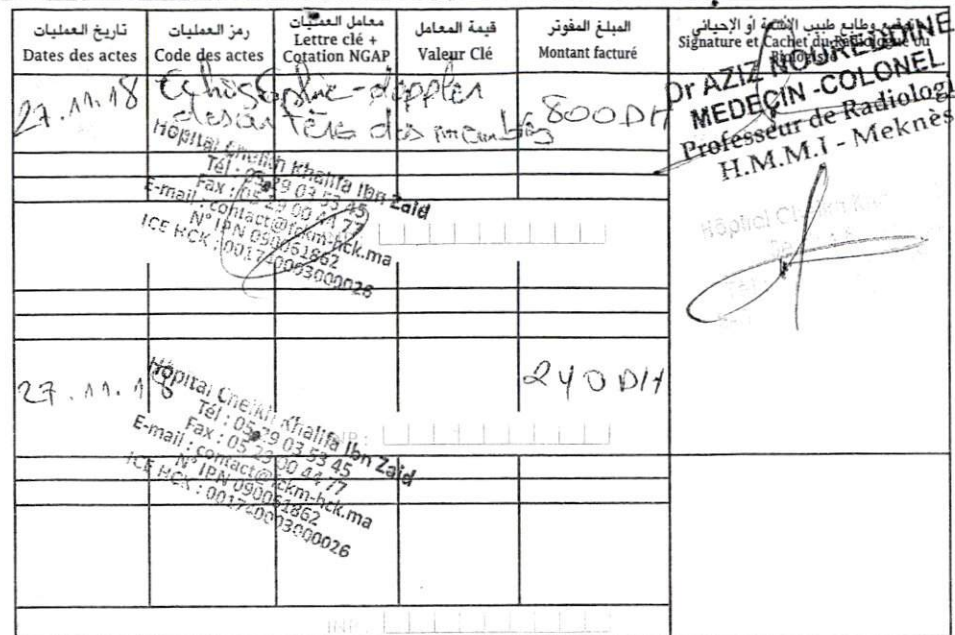 تاريخ العمليات
Dates des actes
رمز العمليات
Code des actes
معامل العمليات
Lettre clé +
Cotation NGAP
قيمة المعامل
Valeur Clé
المبلغ المفوتر
Montant facturé
توقيع وطابع طبيب الأشعة أو الإحيائي
Signature et Cachet du Radiologue ou
Biologiste
27.11.18
doppler
des membres
800 DH
Dr AZIZ NOUREDDINE
MEDECIN -COLONEL
Professeur de Radiologi
H.M.M.I - Meknès
Hôpital Cheikh Khalifa Ibn Zaid
Tél : 05 29 03 53 45
Fax : 05 29 00 44 77
E-mail : contact@fckm-hck.ma
ICE HCK :
27.11.18
240 DH
Hôpital Cheikh Khalifa Ibn Zaid
Tél : 05 29 03 53 45
E-mail : contact@fckm-hck.ma
N° IPN 090061862
ICE HCK :
INP :
INP :